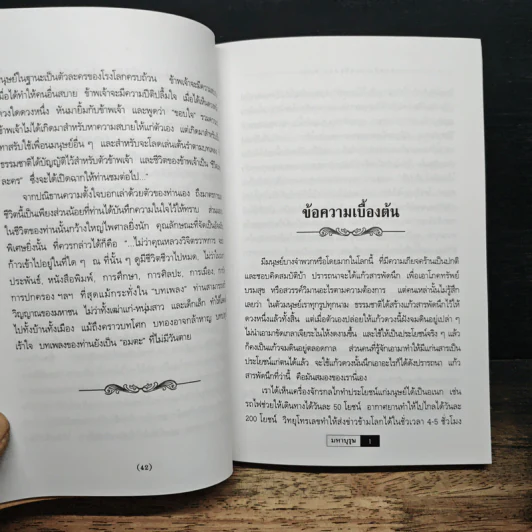 มนุษย์ในฐานะเป็นตัวละครของโรงโลกครบถ้วน ข้าพเจ้าจะมีความ
เมื่อได้ทำให้คนอื่นสบาย ข้าพเจ้าจะมีความปีติปลื้มใจ เมื่อได้เห็น
ดวงใดดวงหนึ่ง หันมายิ้มกับข้าพเจ้า และพูดว่า "ขอบใจ"
ข้าพเจ้าไม่ได้เกิดมาสำหรับหาความสบายให้แก่ตัวเอง แต่เกิดมาสำหรับ
หาสรับใช้เพื่อนมนุษย์อื่น ๆ และสำหรับจะโลดเล่นเต้นรำตามบทเพลง
ธรรมชาติได้บัญญัติไว้สำหรับตัวข้าพเจ้า และชีวิตของข้าพเจ้าเป็น
ละคร" ซึ่งจะได้เปิดฉากให้ท่านชมต่อไป..."
จากปณิธานความตั้งใจบอกเล่าด้วยตัวของท่านเอง ถึง
ชีวิตนี้เป็นเพียงส่วนน้อยที่ท่านได้บันทึกความในใจไว้ให้ทราบ
ในชีวิตของท่านนั้นกว้างใหญ่ไพศาลยิ่งนัก คุณลักษณะที่จัดเป็น
พิเศษยิ่งนั้น ที่ควรกล่าวได้ก็คือ "...ไม่ว่าคุณหลวงวิจิตรวาทการ
ก้าวเข้าไปอยู่ในที่ใด ๆ ณ ที่นั้น ๆ ดูมีชีวิตชีวาไปหมด, ไม่ว่า
ประพันธ์, หนังสือพิมพ์, การศึกษา, การศิลปะ, การเมือง
การปกครอง ฯลฯ ที่สุดแม้กระทั่งใน "บทเพลง" ท่านสามารถ
วิญญาณของมหาชน ไม่ว่าทั้งเฒ่าแก่-หนุ่มสาว และเด็กเล็ก ทำให้
ไปทั้งบ้านทั้งเมือง แม้ถึงคราวบทโศก บทองอาจกล้าหาญ
เร้าใจ บทเพลงของท่านยังเป็น "อมตะ" ที่ไม่มีวันตาย
(42)
ข้อความเบื้องต้น
มีมนุษย์บางจำพวกหรือโดยมากในโลกนี้ ที่มีความเกียจคร้านเป็นปกติ
และชอบคิดสมบัติบ้า ปรารถนาจะได้แก้วสารพัดนึก เพื่อเอาโภคทรัพย์
บรมสุข หรือสวรรค์วิมานอะไรตามความต้องการ แต่คนเหล่านั้นไม่รู้สึก
เลยว่า ในตัวมนุษย์เราทุกรูปทุกนาม ธรรมชาติได้สร้างแก้วสารพัดนึกไว้ให้
ดวงหนึ่งแล้วทั้งสิ้น แต่เมื่อตัวเองปล่อยให้แก้วดวงนี้มัวจมดินอยู่เปล่า ๆ
ไม่นำเอามาขัดเกลาเจียระไนให้งดงามขึ้น และใช้ให้เป็นประโยชน์จริง ๆ แล้ว
ก็คงเป็นแก้วจมดินอยู่ตลอดกาล ส่วนคนที่รู้จักเอามาทำให้มีแก่นสารเป็น
ประโยชน์แก่ตนได้แล้ว จะใช้แก้วดวงนั้นนึกเอาอะไรก็ได้ดังปรารถนา แก้ว
สารพัดนึกที่ว่านี้ คือมันสมองของเรานี่เอง
เราได้เห็นเครื่องจักรกลไกทำประโยชน์แก่มนุษย์ได้เป็นอเนก เช่น
รถไฟช่วยให้เดินทางได้วันละ 50 โยชน์ อากาศยานทำให้ไปไกลได้วันละ
200 โยชน์ วิทยุโทรเลขทำให้ส่งข่าวข้ามโลกได้ในชั่วเวลา 4-5 ชั่วโมง
มหาบุรุษ 1